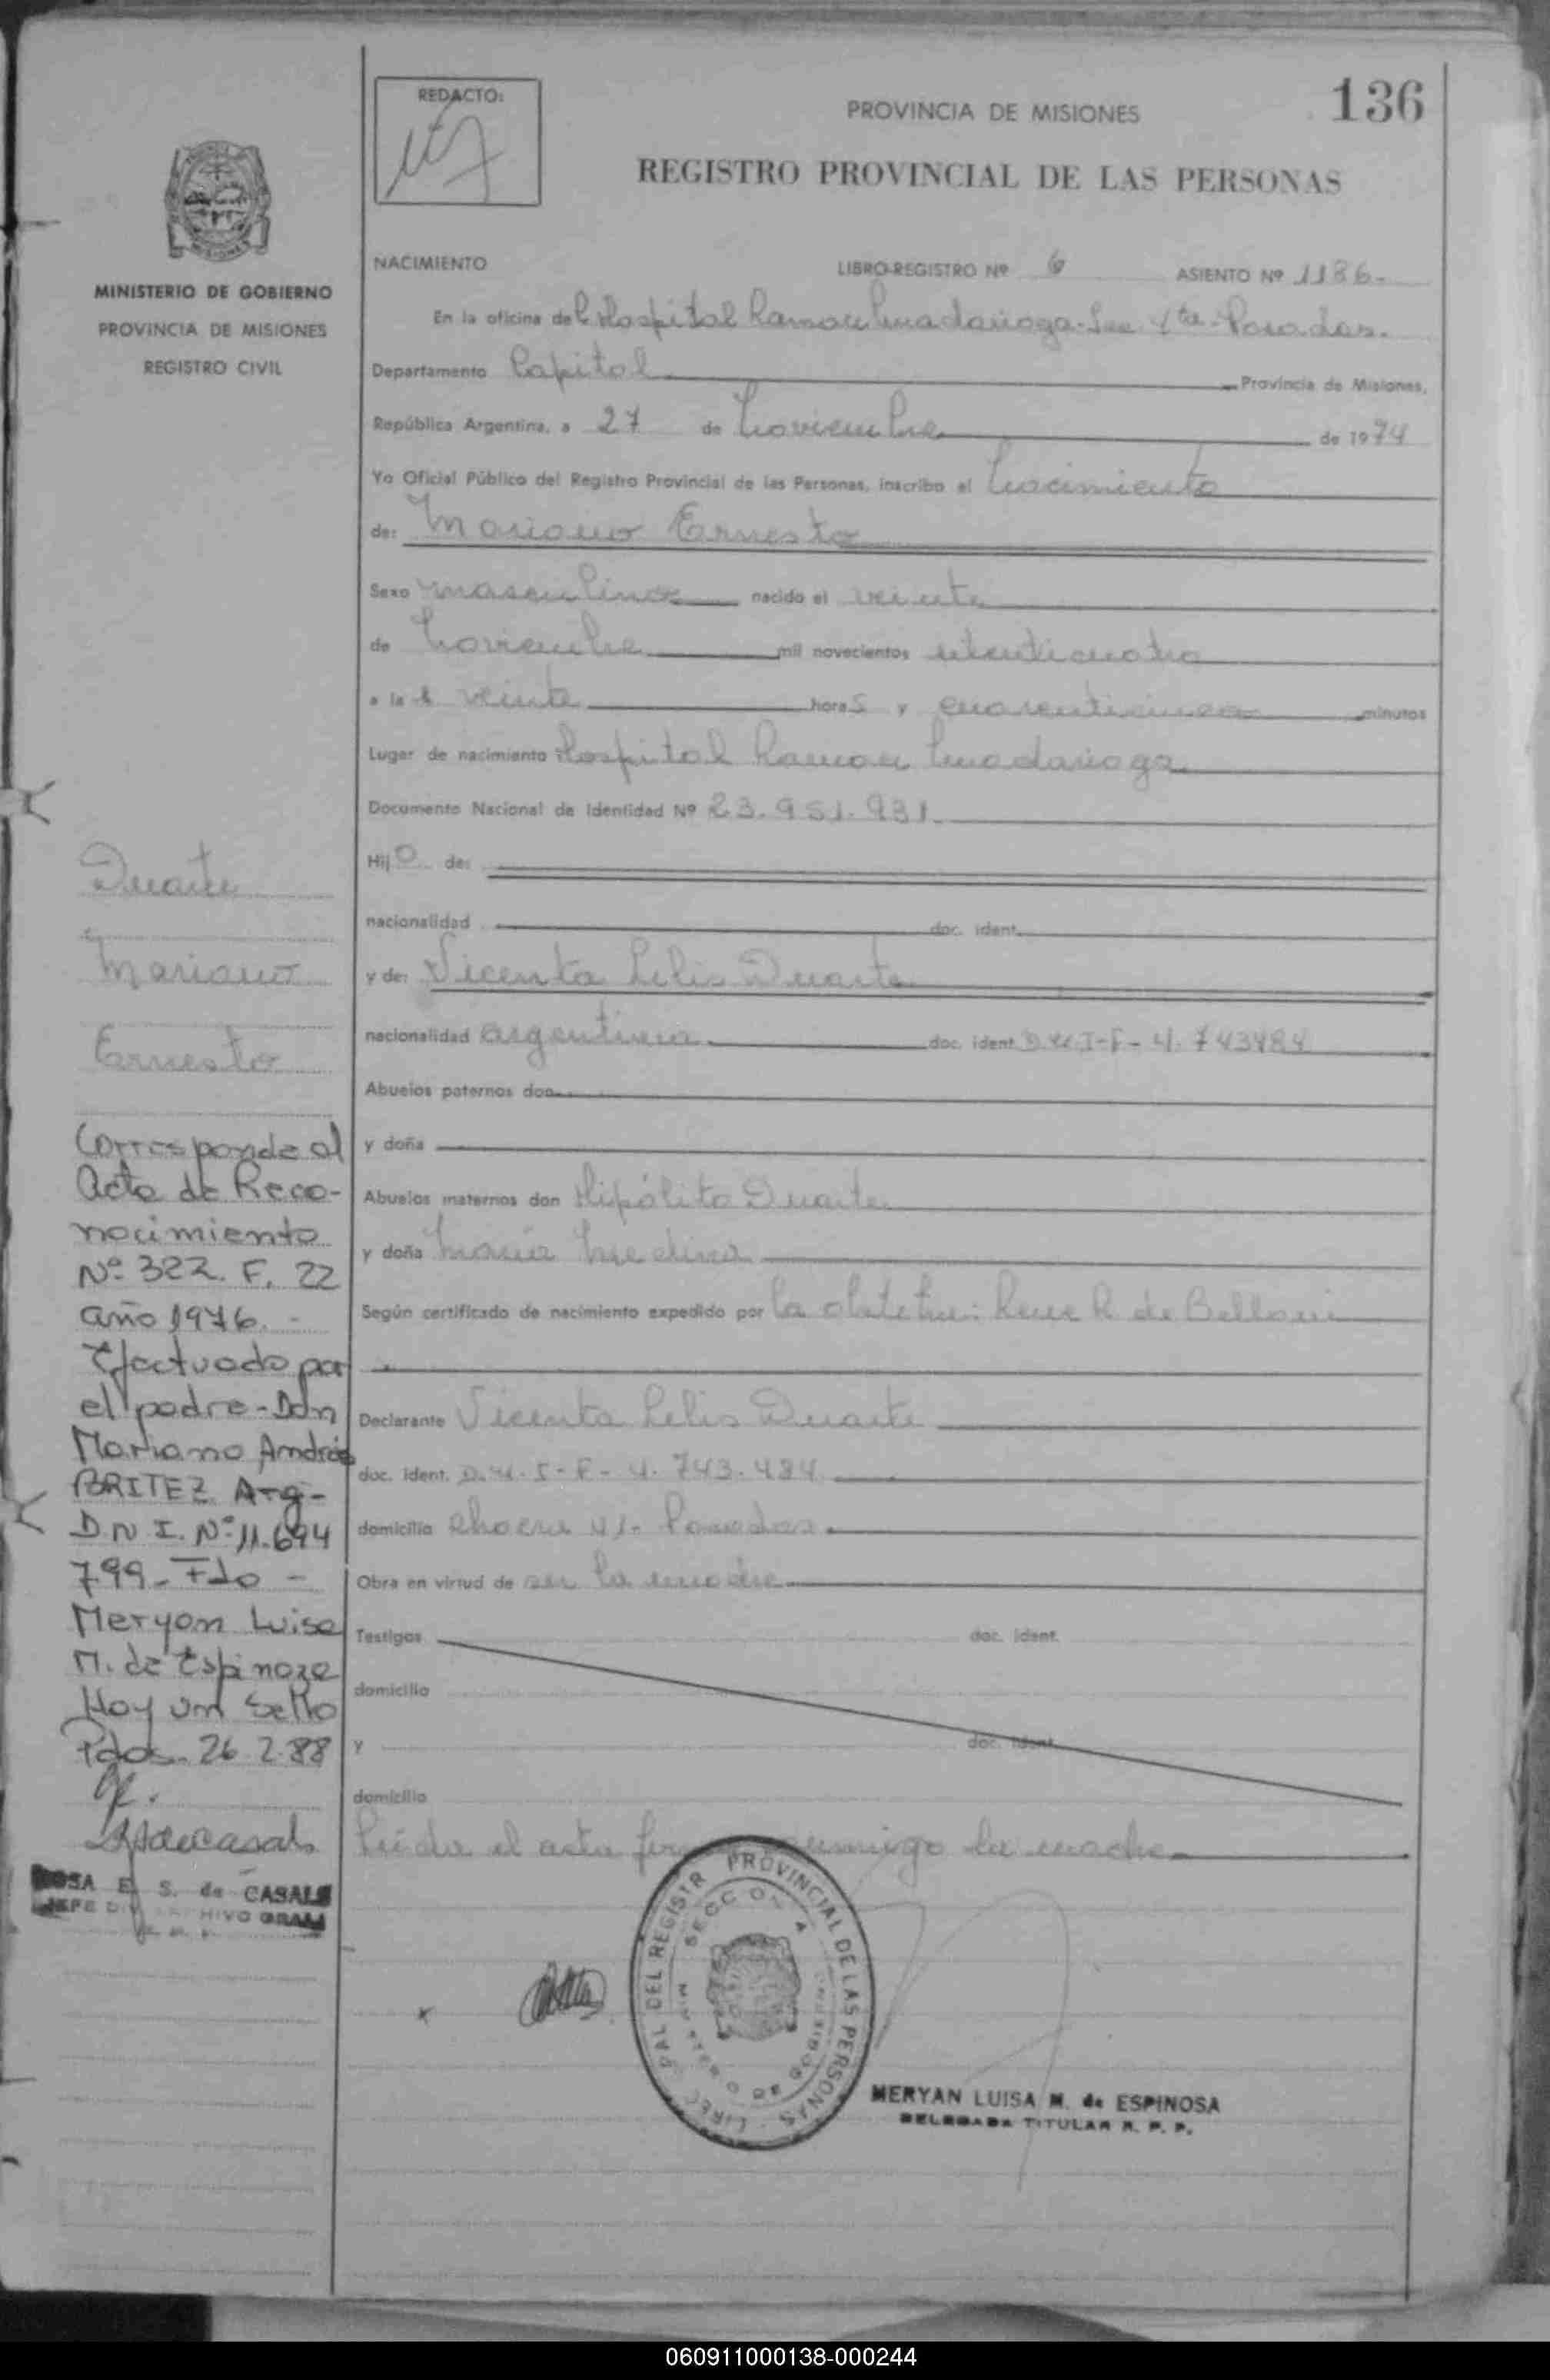 136
REDACTO:
PROVINCIA DE MISIONES
REGISTRO PROVINCIAL DE LAS PERSONAS
MINISTERIO DE GOBIERNO
PROVINCIA DE MISIONES
REGISTRO CIVIL
NACIMIENTO LIBRO-REGISTRO Nº 6 ASIENTO Nº 1186.-
En la oficina del Hospital Ramon Madariaga - Sec. 4ta - Posadas.
Departamento Capital Provincia de Misiones,
República Argentina, a 27 de Noviembre de 1974
Yo Oficial Público del Registro Provincial de las Personas, inscribo el Nacimiento
de: Mariano Ernesto
Sexo masculino nacido el veinte
de Noviembre mil novecientos setenticuatro
a las veinte horas y cuarenticinco minutos
Lugar de nacimiento Hospital Ramon Madariaga
Documento Nacional de Identidad Nº 23.951.931
Hijo de:
nacionalidad doc. ident.
y de: Vicenta Lelis Duarte
nacionalidad argentina doc. ident. D.N.I-F- 4.743484
Abuelos paternos don
y doña
Abuelos maternos don Hipólito Duarte
y doña María Medina
Según certificado de nacimiento expedido por la obstetra: Rene R de Belloni
Declarante Vicenta Lelis Duarte
doc. ident. D.N.I-F- 4.743.484
domicilio Posadas
Obra en virtud de ser la madre
Testigos doc. ident.
domicilio
y doc. ident.
domicilio
Leída el acta conmigo la madre
Duarte
Mariano
Ernesto
Corresponde al
Acta de Reco-
nocimiento
Nº 322. F. 22
año 1976.-
Efectuado por
el padre - Don
Mariano Andrés
BRITEZ Arg-
D N I. Nº 11.694
799 - Fdo -
Meryan Luisa
M. de Espinoza
Hay un Sello
Pdas. 26.2.88
ROSA E. S. de CASALS
JEFE DIV ARCHIVO GRAL
PROVINCIAL DE LAS PERSONAS
MERYAN LUISA M. de ESPINOSA
DELEGADA TITULAR R. P. P.
060911000138-000244